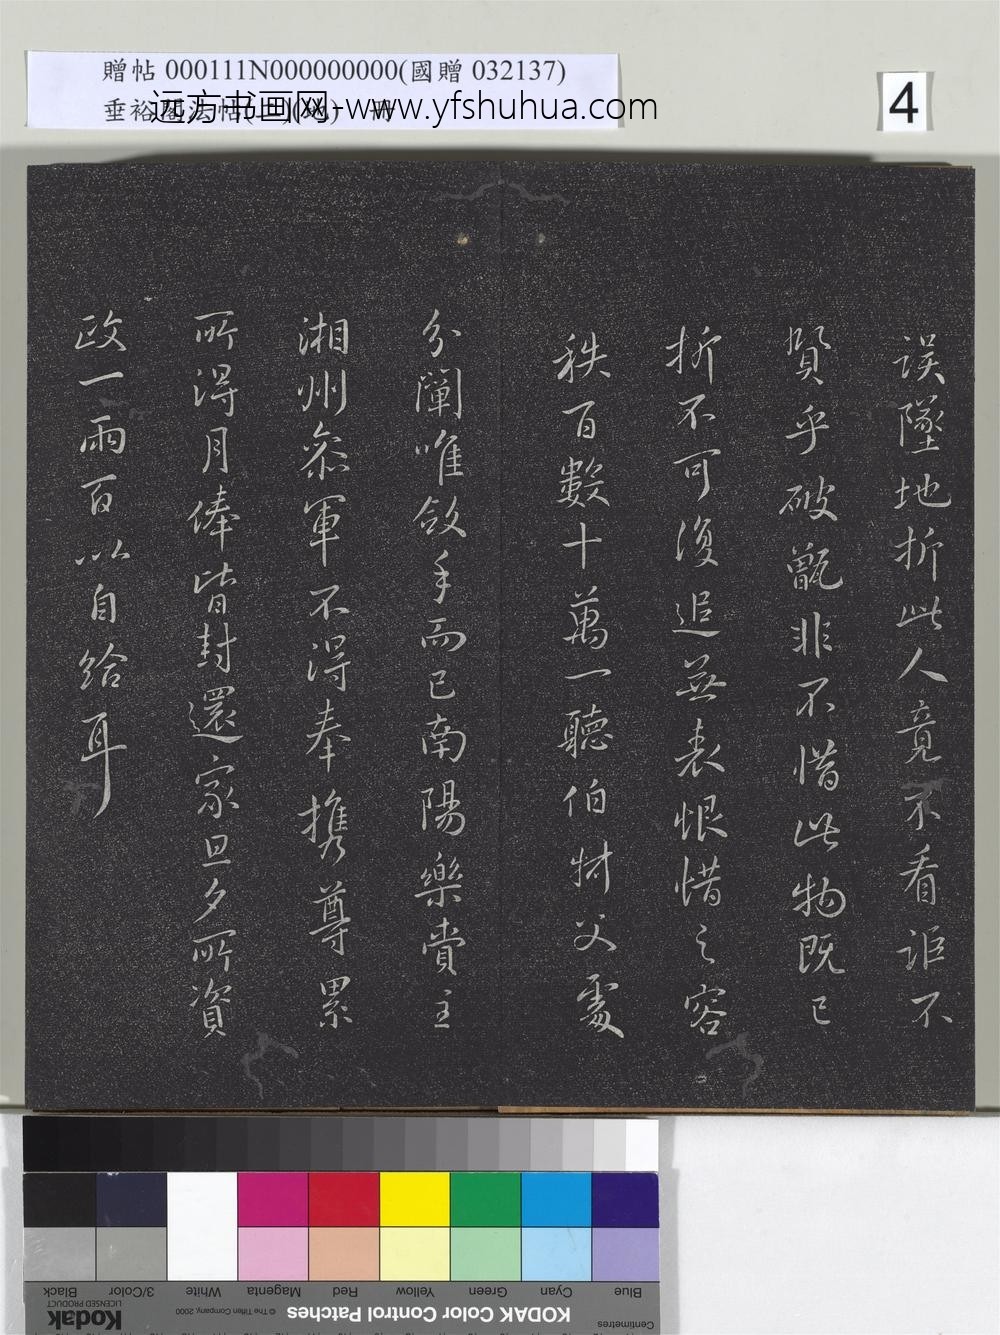 贈帖 000111N000000000(國贈 032137)
远方书画网-www.yfshuhua.com
4
误墜地折此人竟不看詎不
賢乎破甑非不惜此物既已
折不可復追無表恨惜之容
秩百數十萬一聽伯財父處
分闡唯斂手而已南陽樂賣主
湘州參軍不得奉攜尊累
所得月俸皆封還家旦夕所資
政一兩百以自給耳
Centimetres
Blue Cyan Green Yellow Red Magenta White 3/Color Black
KODAK Color Control Patches
© The Tiffen Company, 2000
Kodak
LICENSED PRODUCT